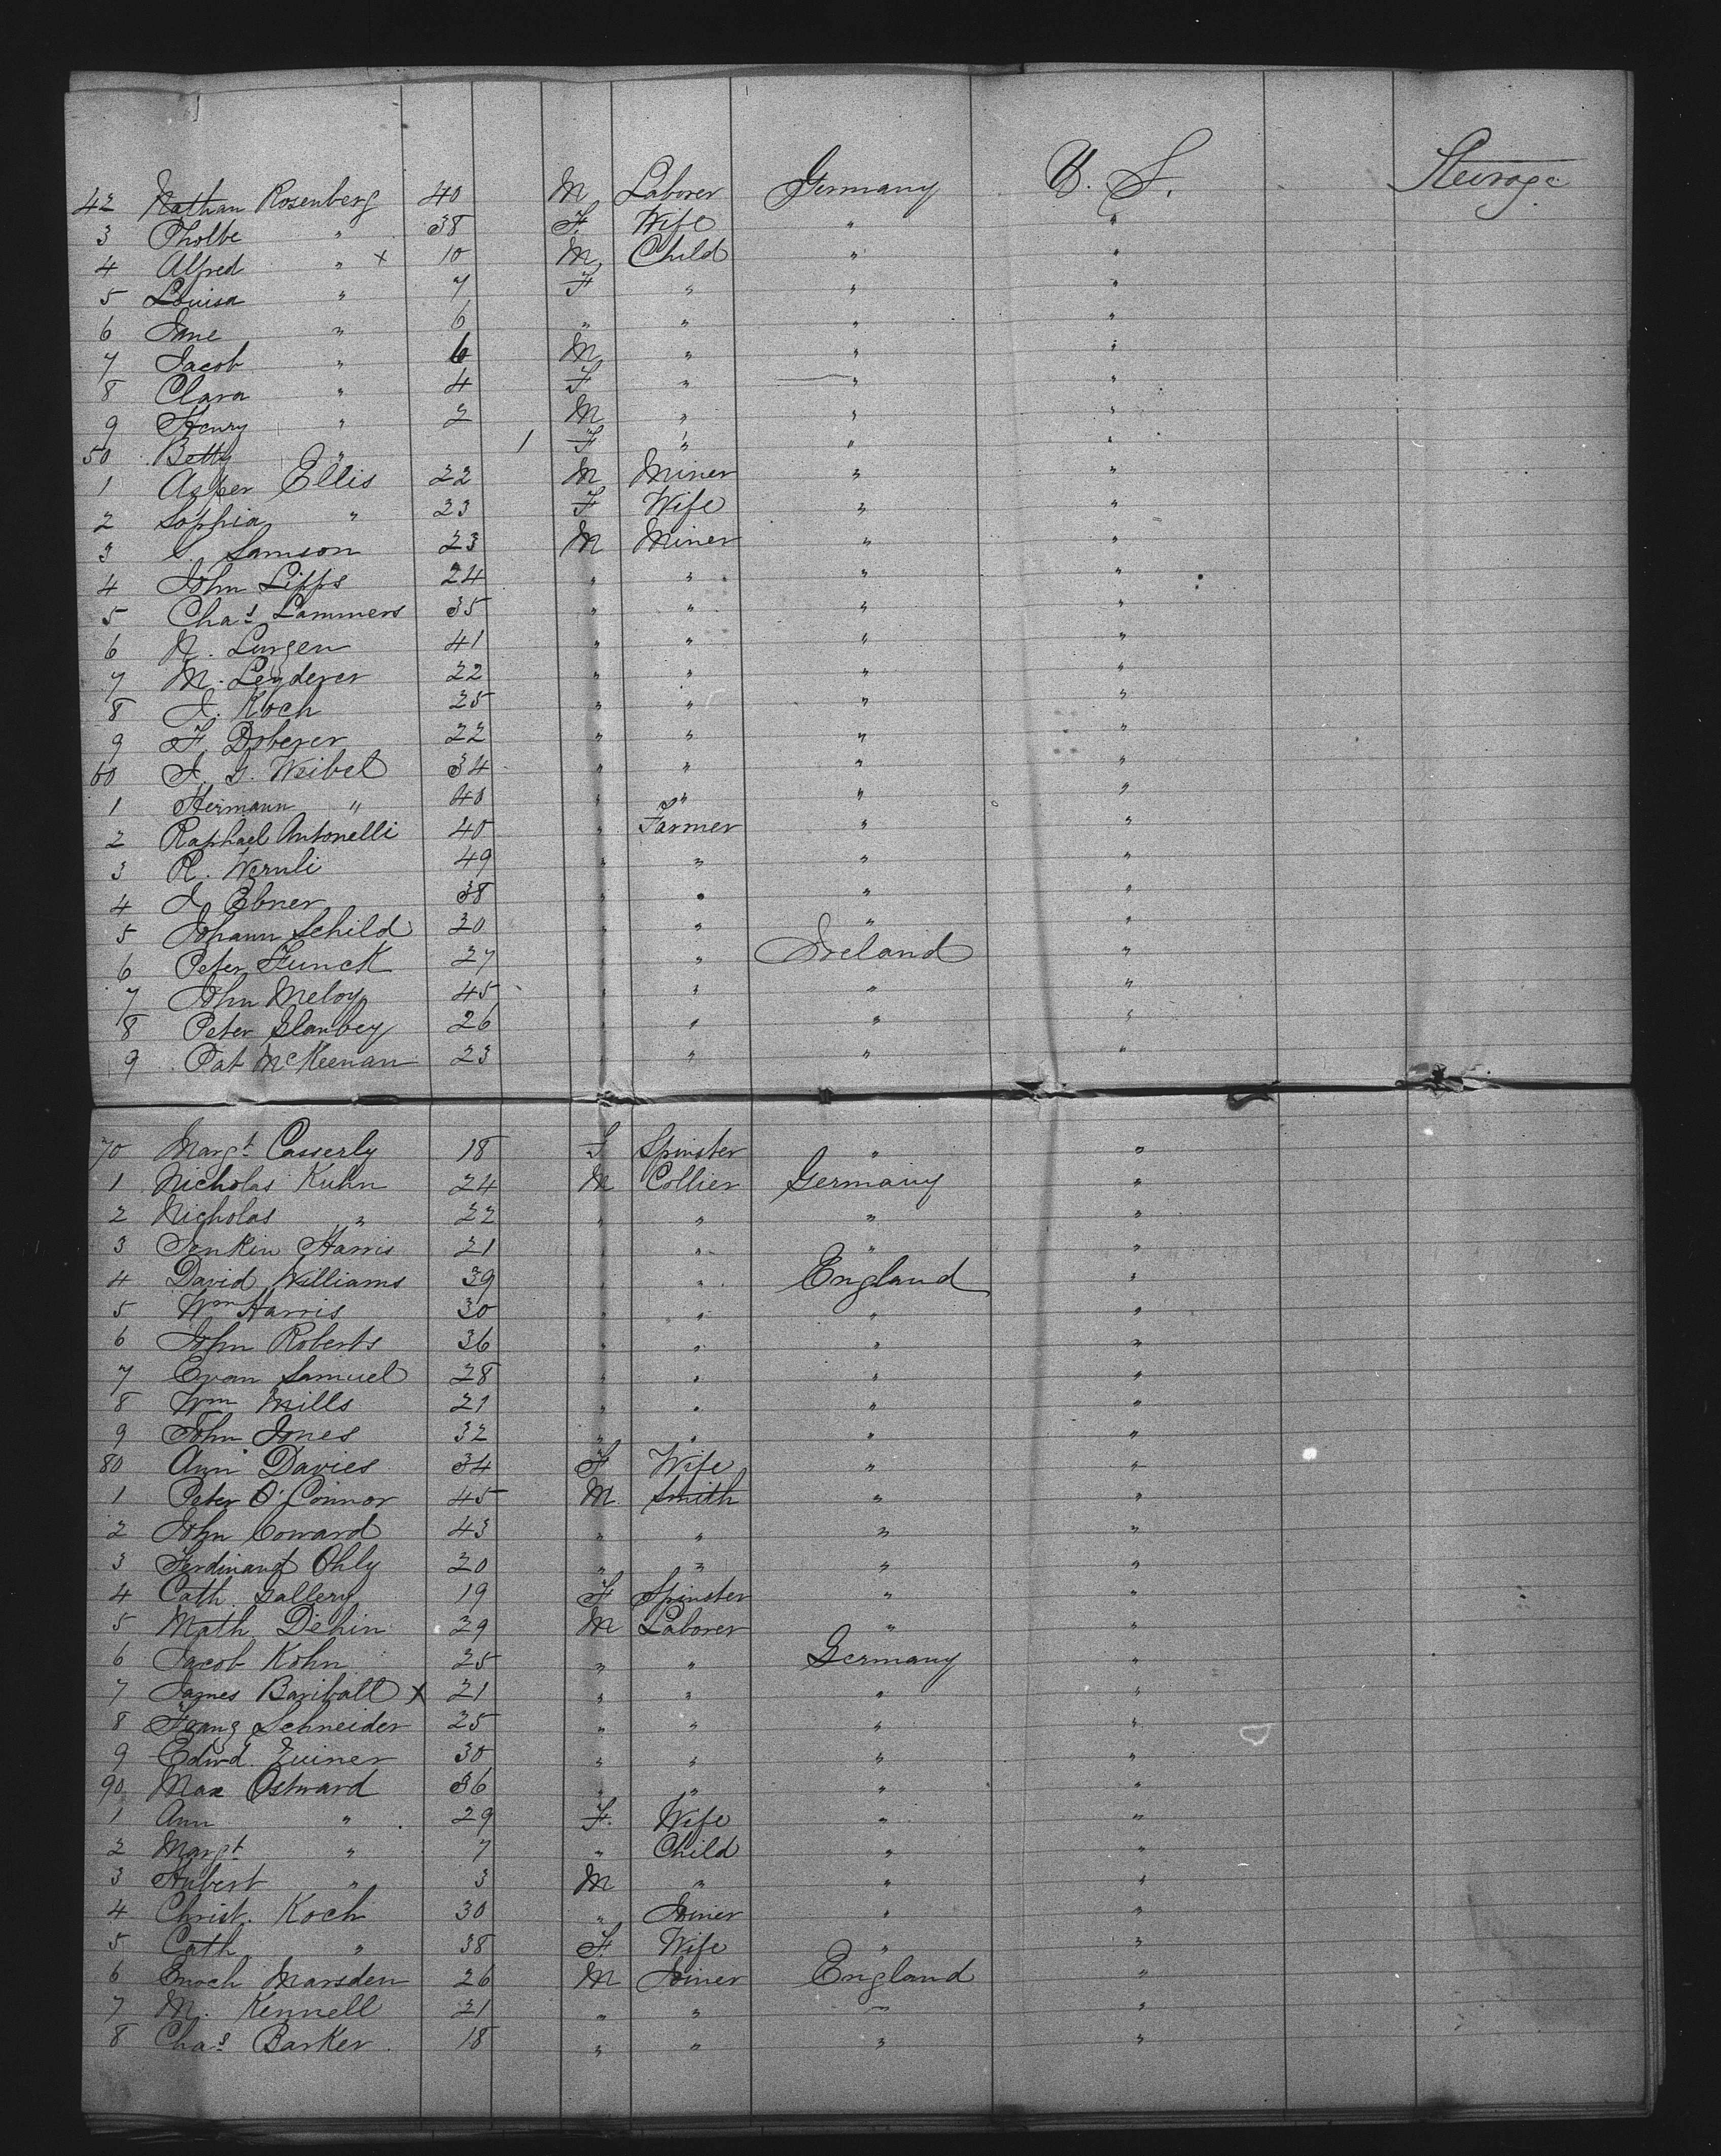 42 Nathan Rosenberg 40 M Laborer Germany U. S. Steerage
3 Pholbe " 38 F. Wife " "
4 Alfred " x 10 M Child " "
5 Louisa " 7 F " " "
6 Jane " 6 " " " "
7 Jacob " 6 M " " "
8 Clara " 4 F " " "
9 Henry " 2 M " " "
50 Betty " 1 F " " "
1 Asper Ellis 22 M Miner " "
2 Sophia " 23 F Wife " "
3 Samson 23 M Miner " "
4 John Lipps 24 " " " "
5 Chas Lammers 35 " " " "
6 N. Lurgen 41 " " " "
7 M. Leyderer 22 " " " "
8 J. Koch 25 " " " "
9 F. Doberer 22 " " " "
60 J. G. Weibel 34 " " " "
1 Hermann " 40 " " " "
2 Raphael Antonelli 40 " Farmer " "
3 R. Wernli 49 " " " "
4 J Ebner 38 " " " "
5 Johann Schild 20 " " " "
6 Peter Funck 27 " " Ireland "
7 John Meloy 45 " " " "
8 Peter 26 " " " "
9 Pat McKeenan 23 " " " "
70 Margt Casserly 18 F Spinster " "
1 Nicholas Kuhn 24 M Collier Germany "
2 Nicholas " 22 " " " "
3 Jenkin Harris 21 " " " "
4 David Williams 39 " " England "
5 Wm Harris 30 " " " "
6 John Roberts 36 " " " "
7 Evan Samuel 28 " " " "
8 Wm Mills 21 " " " "
9 John Jones 32 " " " "
80 Ann Davies 34 F Wife " "
1 Peter O'Connor 45 M Smith " "
2 John Coward 43 " " " "
3 Ferdinand Ohly 20 " " " "
4 Cath. Gallery 19 F Spinster " "
5 Math. Dehin 29 M Laborer " "
6 Jacob Kohn 25 " " Germany "
7 James Bariball x 21 " " " "
8 Franz Schneider 25 " " " "
9 Edwd Zuiner 30 " " " "
90 Max Ostward 36 " " " "
1 Ann " 29 F. Wife " "
2 Margt " 7 " Child " "
3 Hubert " 3 M " " "
4 Christ. Koch 30 " Joiner " "
5 Cath " 38 F. Wife " "
6 Enoch Marsden 26 M Joiner England "
7 M. Kennell 21 " " " "
8 Chas Barker 18 " " " "